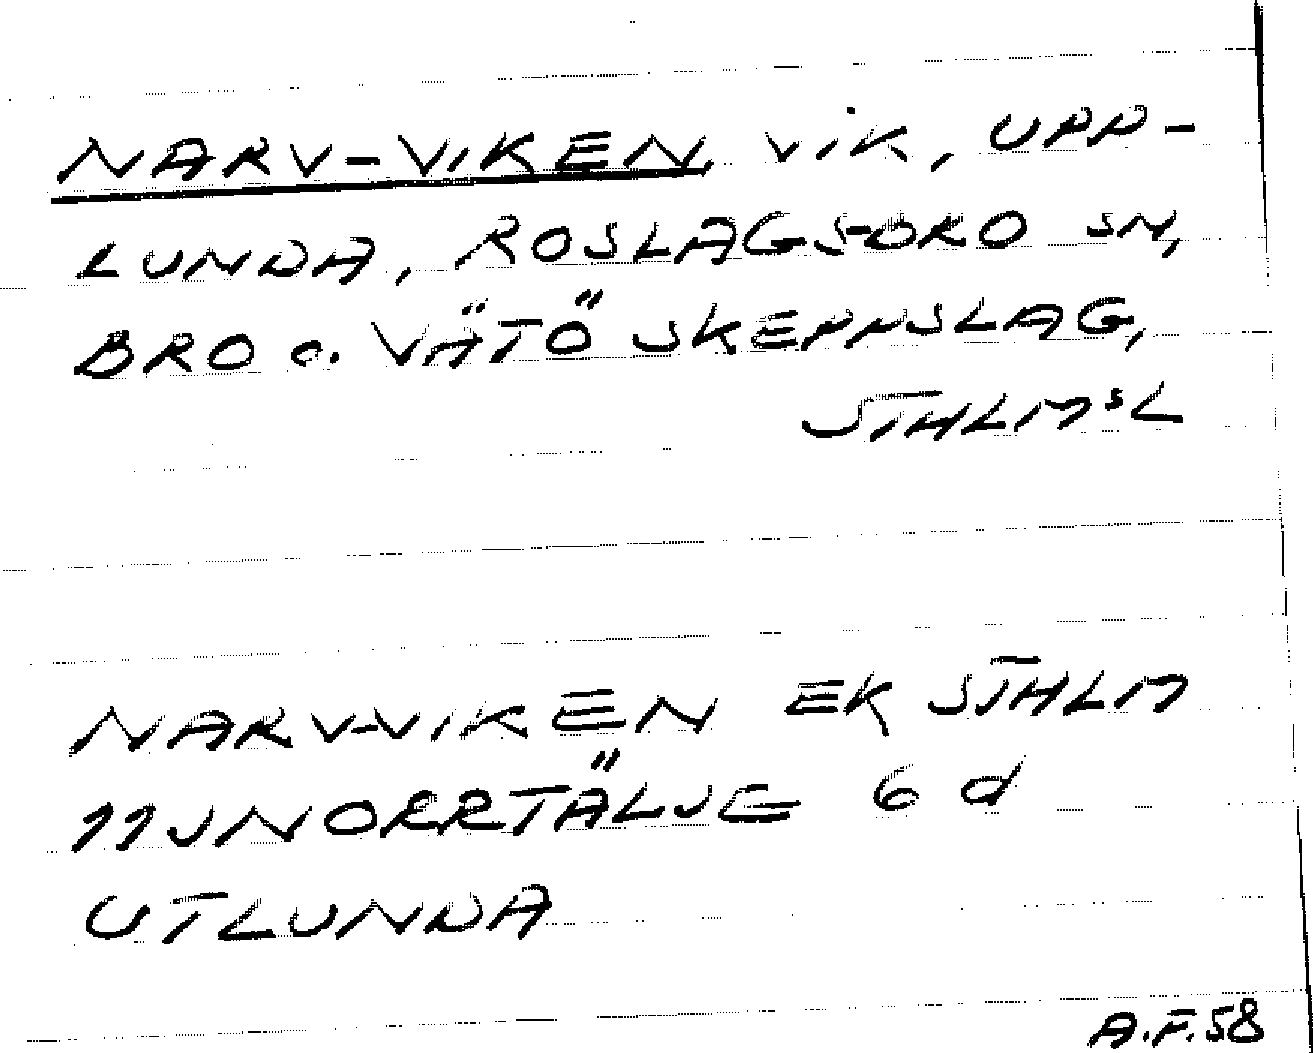 NARV-VIKEN VIK, UPP-
LUNDA, ROSLAGS-BRO SN,
BRO O. VÄTÖ SKEPPSLAG,
STHLMS L
NARV-VIKEN EK STHLM
11J NORRTÄLJE 6 d
UTLUNDA
A.F.58